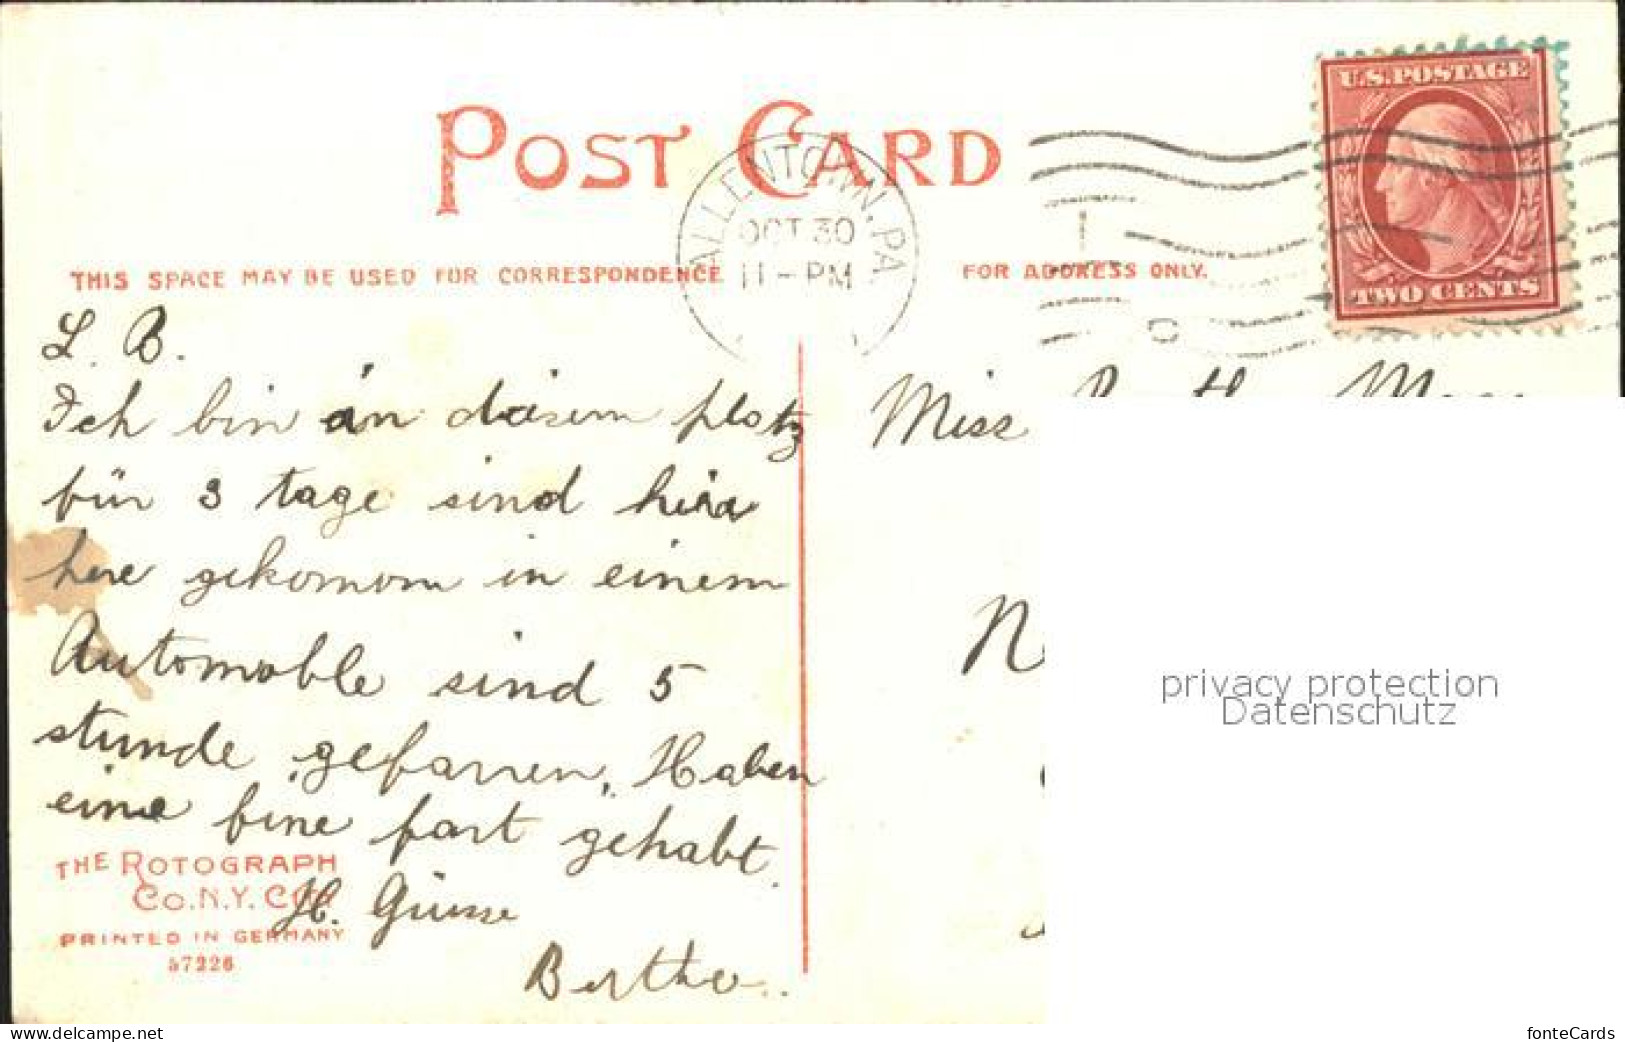 POST CARD
U.S. POSTAGE
TWO CENTS
ALLENTOWN, PA
OCT 30
11 - PM
THIS SPACE MAY BE USED FOR CORRESPONDENCE
FOR ADDRESS ONLY.
L. B.
Ich bin an diesem platz
für 3 tage sind
here gekommen in einem
Automoble sind 5
stunde gefarren, Haben
eine fine fart gehabt.
H. Grüsse
Bertha.
Miss
THE ROTOGRAPH
Co. N.Y. City
PRINTED IN GERMANY
57226
privacy protection
Datenschutz
www.delcampe.net
fonteCards